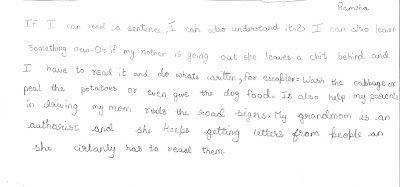 Ramsha
If I can read a sentence, I can also understand it. I can also learn
something new. Or if my mother is going out she leaves a chit behind and
I have to read it and do whats written, for example= Wash the cabbage or
peal the potatoes or even give the dog food. It also help my parents
in driving my mom reads the road signs, My grandmom is an
authorist and she keeps getting letters from people an
she cirtanly has to read them.